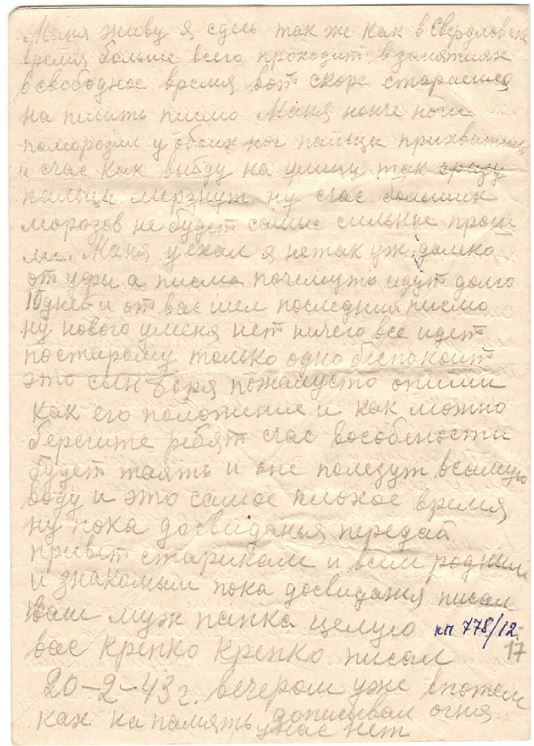 Маня живу я сдесь так же как в Свердловске
время больше всего проходит взанятиях
всвободное время вот скоре стараешся
на писать писмо Маня нонче ноги
поморозил у обоих ног пальцы прихватил
и счас как выйду на улицу так сразу
пальцы мерзнут ну счас больших
морозов не будет самые сильные прош
ли. Маня уехал я нетак уж далеко
от уфы а писма почемуто идут долго
10 дней и от вас шел последния писмо
ну нового уменя нет ничего все идет
постарому только одно беспокоит
это сын боря пожалусто опиши
как его положения и как можно
берегите ребят счас вособености
будет таять и оне полезут всякую
воду и это самое плохое время
ну пока досвиданья передай
привет старикам и всем родным
и знакомым пока досвидания писал
Ваш муж папка целую
кп 778/12-
17
вас крепко крепко писал
20-2-43 г. вечером уже впотем
ках на память дописывал огня
унас нет